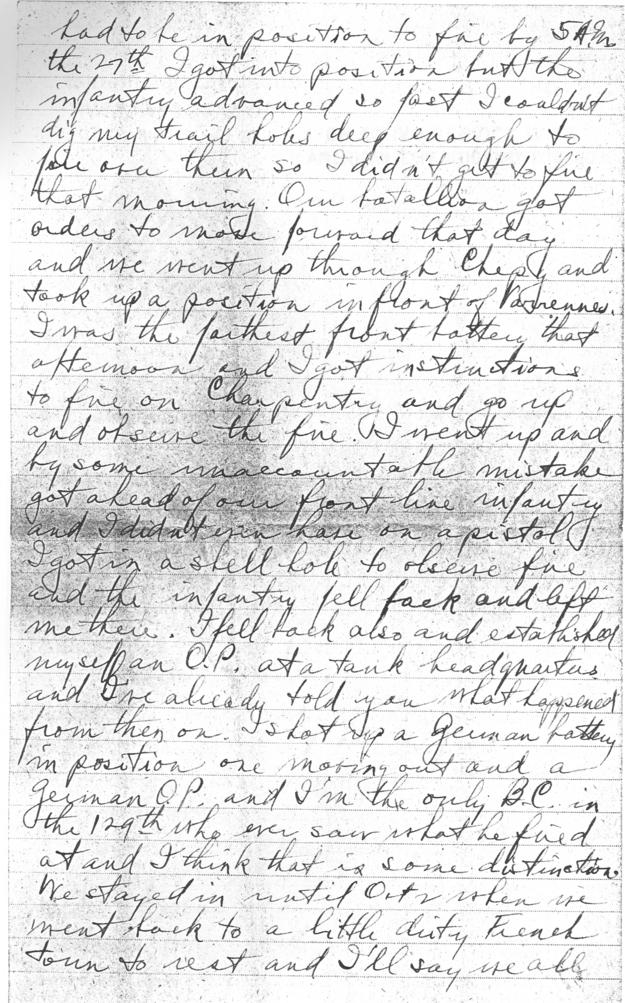 had to be in position to fire by 5 AM
the 27th I got into position but the
infantry advanced so fast I couldnt
dig my trail holes deep enough to
fire over them so I didn't get to fire
that morning. Our batallion got
orders to move forward that day
and we went up through Chepy and
took up a position in front of Varrennes.
I was the farthest front battery that
afternoon and I got instructions
to fire on Charpentry and go up
and observe the fire. I went up and
by some unaccountable mistake
got ahead of our front line infantry
and I didn't even have on a pistol
I got in a shell hole to observe fire
and the infantry fell back and left
me there. I fell back also and established
myself an O.P. at a tank headquarters
and I've already told you what happened
from then on. I shot up a German battery
in position one moving out and a
German O.P. and I'm the only B.C. in
the 129th who ever saw what he fired
at and I think that is some distinction.
We stayed in until Oct 2 when we
went back to a little dirty French
town to rest and I'll say we all